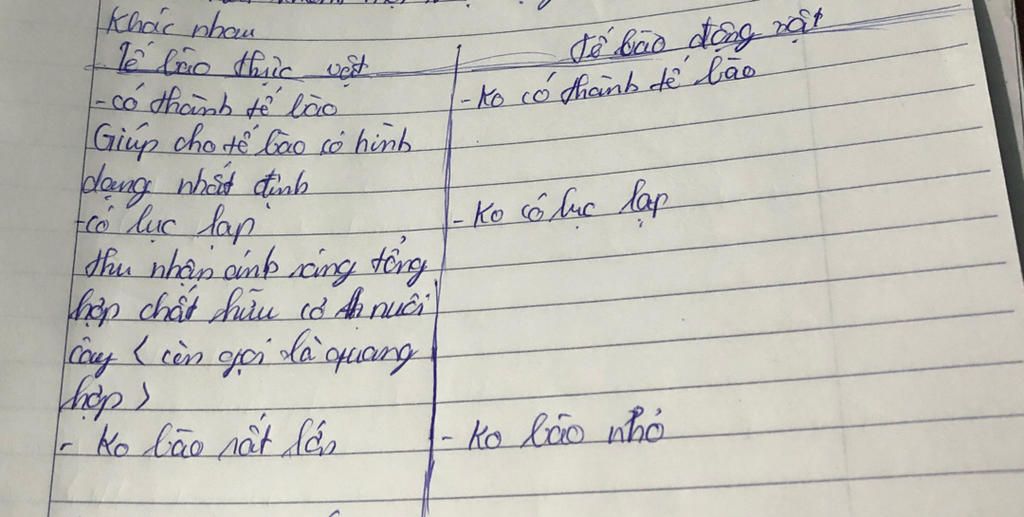 Khác nhau
Tế bào thực vật
tế bào động vật
- có thành tế bào
- Ko có thành tế bào
Giúp cho tế bào có hình
dạng nhất định
- có lục lạp
- Ko có lục lạp
thu nhận ánh sáng tổng
hợp chất hữu cơ nuôi
cây < còn gọi là quang
hợp >
- Ko bào rất lớn
- Ko bào nhỏ